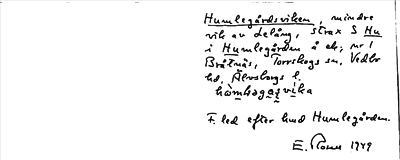 Humlegårdsviken, mindre
vik av Lelång, strax S Hu
i Humlegården å ek; nr 1
Bråtnäs, Torrskogs sn, Vedbo
hd, Älvsborgs l.
F. led efter hmd Humlegården.
E. 1949